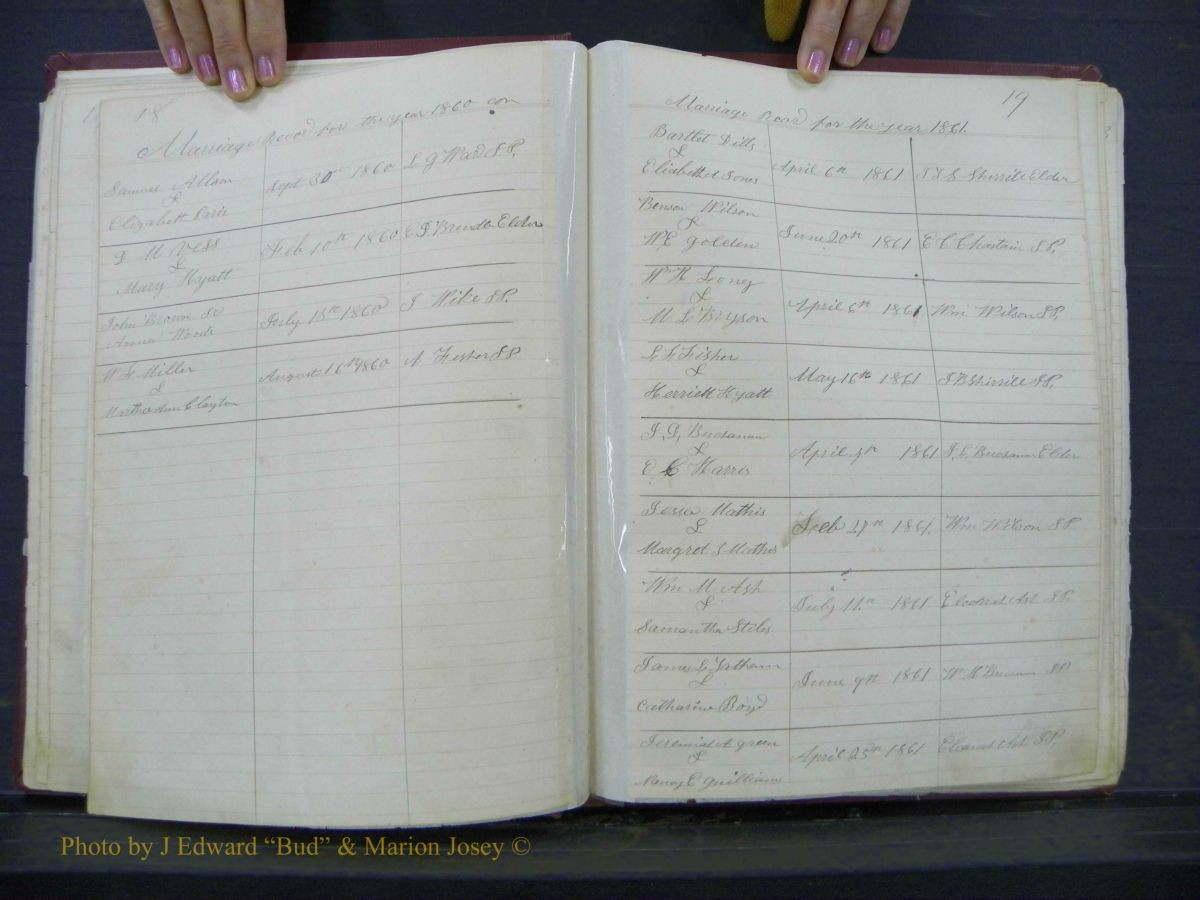 18
Marriage Record for the year 1860 con
Samuel Allson
&
Elizabeth Paris
Sept 30th 1860
L G Ward J.P.
&
Mary Hyatt
Feb 10th 1860
Elder
John Brown Sr
Anna Woods
July 15th 1860
J Wike J.P.
W F Miller
&
Marther Ann Clayton
August 16th 1860
A Fisher J P
19
Marriage Record for the year 1861.
Bartlet Dills
&
Elizabeth Jones
April 6th 1861
Sherrill Elder
Benson Wilson
&
W E Golden
June 20th 1861
E C Chastain J.P.
Wm H Long
&
M L Bryson
April 6th 1861
Wm Wilson J.P.
L F Fisher
&
Herriett Hyatt
May 16th 1861
J B Shirrill J.P.
Buchanan
&
E C Harris
April 1861
Buchanan Elder
Jesse Mathis
&
Margret S Mathis
Feb 27th 1861.
Wm Wilson J.P.
Wm M Ash
&
Samantha Stiles
July 11th 1861
Ash J.P.
James L
&
Catharine Boyd
June 9th 1861
W H J.P.
Jeremiah A green
&
Nancy E Quilliams
April 25th 1861
Ash J.P.
Photo by J Edward “Bud” & Marion Josey ©